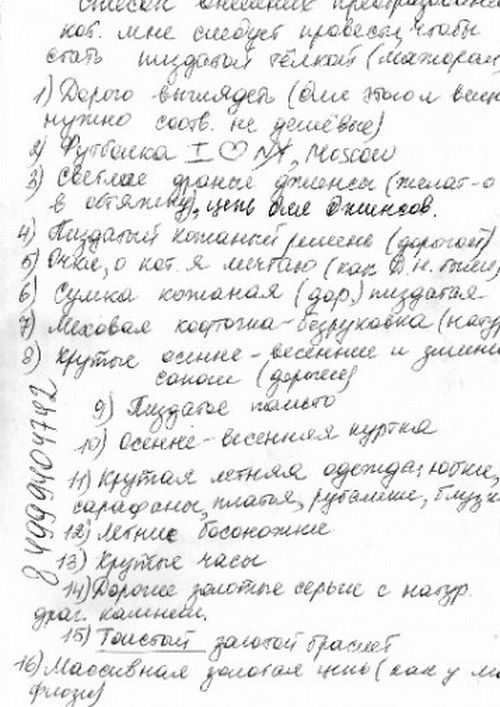 Список внешних преобразован
кот. мне следует провести, чтобы
стать пиздатой тёлкой (мажоран
1) Дорого выглядеть (для этого вещи
нужно соотв. не дешёвые)
2) Футболка I ♡ NY, Moscow
3) Светлые драные джинсы (желат-о
в обтяжку), цепь для джинсов.
4) Пиздатый кожаный ремень (дорогой)
5) Очки, о кот. я мечтаю (как Д.н. были)
6) Сумка кожаная (дор.) пиздатая
7) Меховая кофточка-безрукавка (нату
8) крутые осенне-весенние и зимни
сапоги (дорогие)
9) Пиздатое пальто
10) осенне-весенняя куртка
11) Крутая летняя одежда: юбки,
сарафаны, платья, рубашки, блузк
12) Летние босоножки
13) Крутые часы
14) Дорогие золотые серьги с натур.
драг. камнем.
15) Толстый золотой браслет
16) Массивная золотая цепь (как у мо
8 4999404742